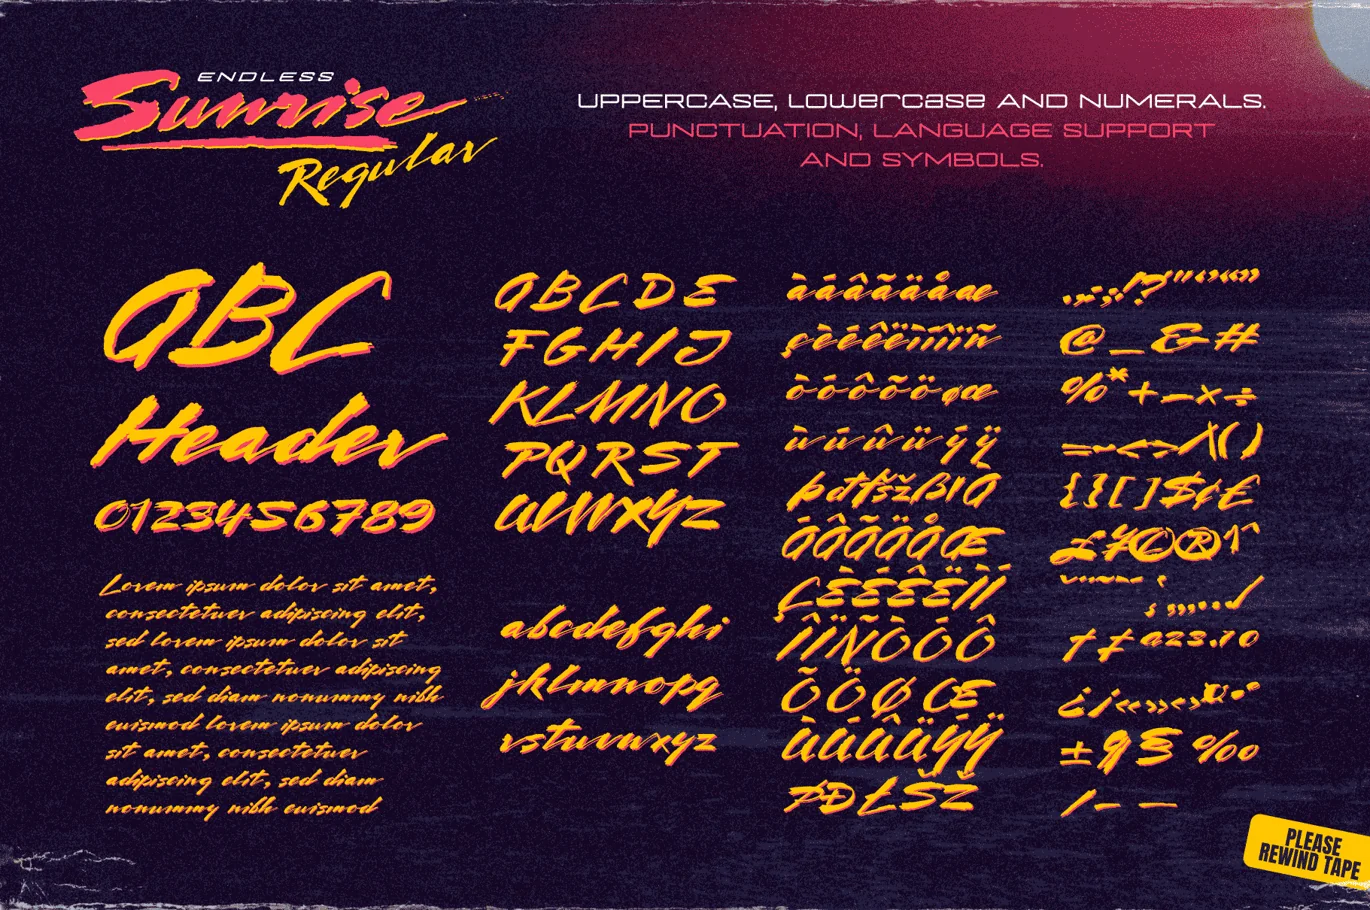 ENDLESS
Sunrise
Regular
UPPERCASE, Lowercase AND NUMERALS.
PUNCTUATION, LANGUAGE SUPPORT
AND SYMBOLS.
ABC
Header
0123456789
Lorem ipsum dolor sit amet,
consectetuer adipiscing elit,
sed lorem ipsum dolor sit
amet, consectetuer adipiscing
elit, sed diam nonummy nibh
euismod lorem ipsum dolor
sit amet, consectetuer
adipiscing elit, sed diam
nonummy nibh euismod
ABCDE
FGHIJ
KLMNO
PQRST
UVWXYZ
abcdefghi
jklmnopq
rstuvwxyz
àáâãäåæ
çèéêëìíîïñ
òóôõöøœ
ùúûüýÿ
ÇÈÉÊËÌÍ
ÎÏÑÒÓÔ
ÕÖØŒ
ÙÚÛÜÝŸ
ÞÐŁŠŽ
@_&#
%*+−×÷
{}[]$¢€
£¥©®
±¶§‰
PLEASE
REWIND TAPE